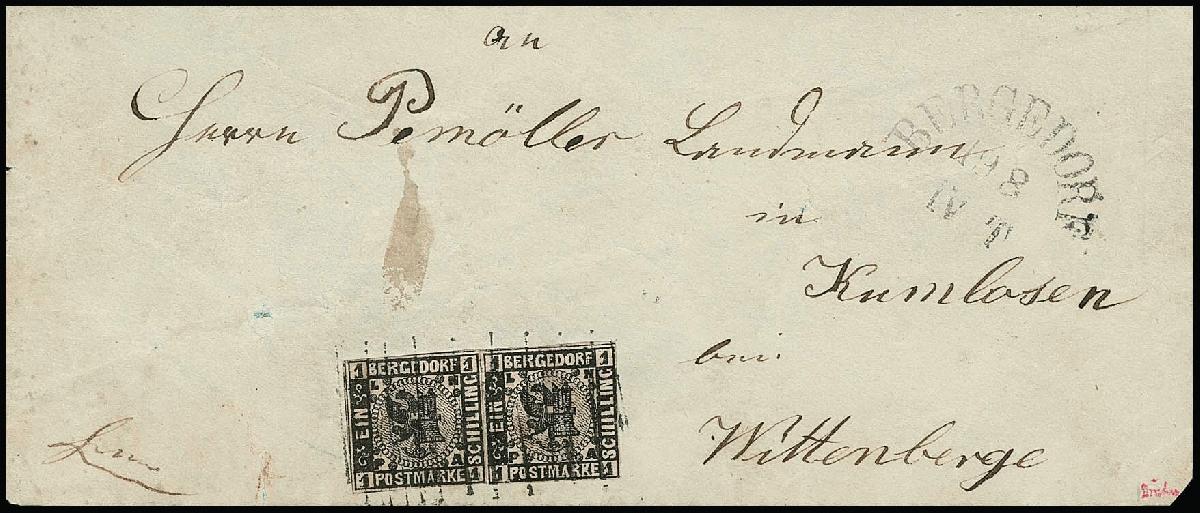 an
Herrn Pemöller Landmann
in
Kumlosen
bei
Wittenberge
BERGEDORF
19 8
IV T
1 BERGEDORF 1
EIN
SCHILLING
L H P A
1 POSTMARKE 1
1 BERGEDORF 1
EIN
SCHILLING
L H P A
1 POSTMARKE 1